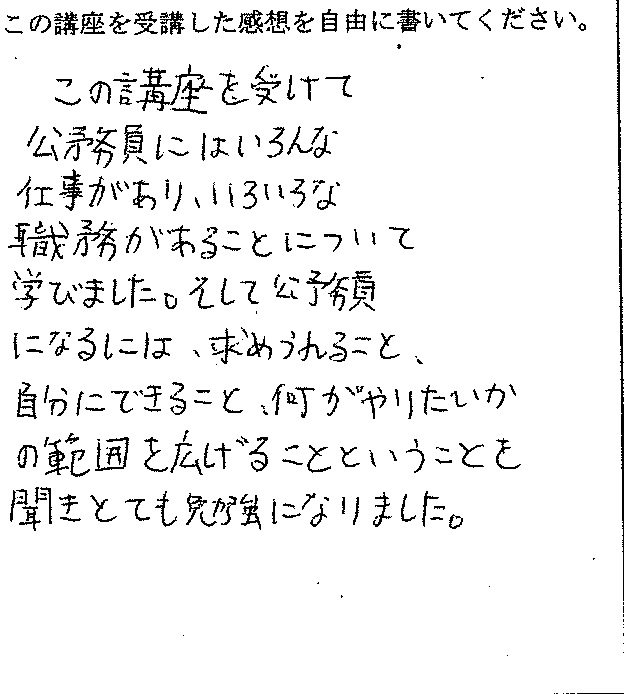 この講座を受講した感想を自由に書いてください。
この講座を受けて
公務員にはいろんな
仕事があり、いろいろな
職務があることについて
学びました。そして公務員
になるには、求められること、
自分にできること、何がやりたいか
の範囲を広げることということを
聞きとても勉強になりました。